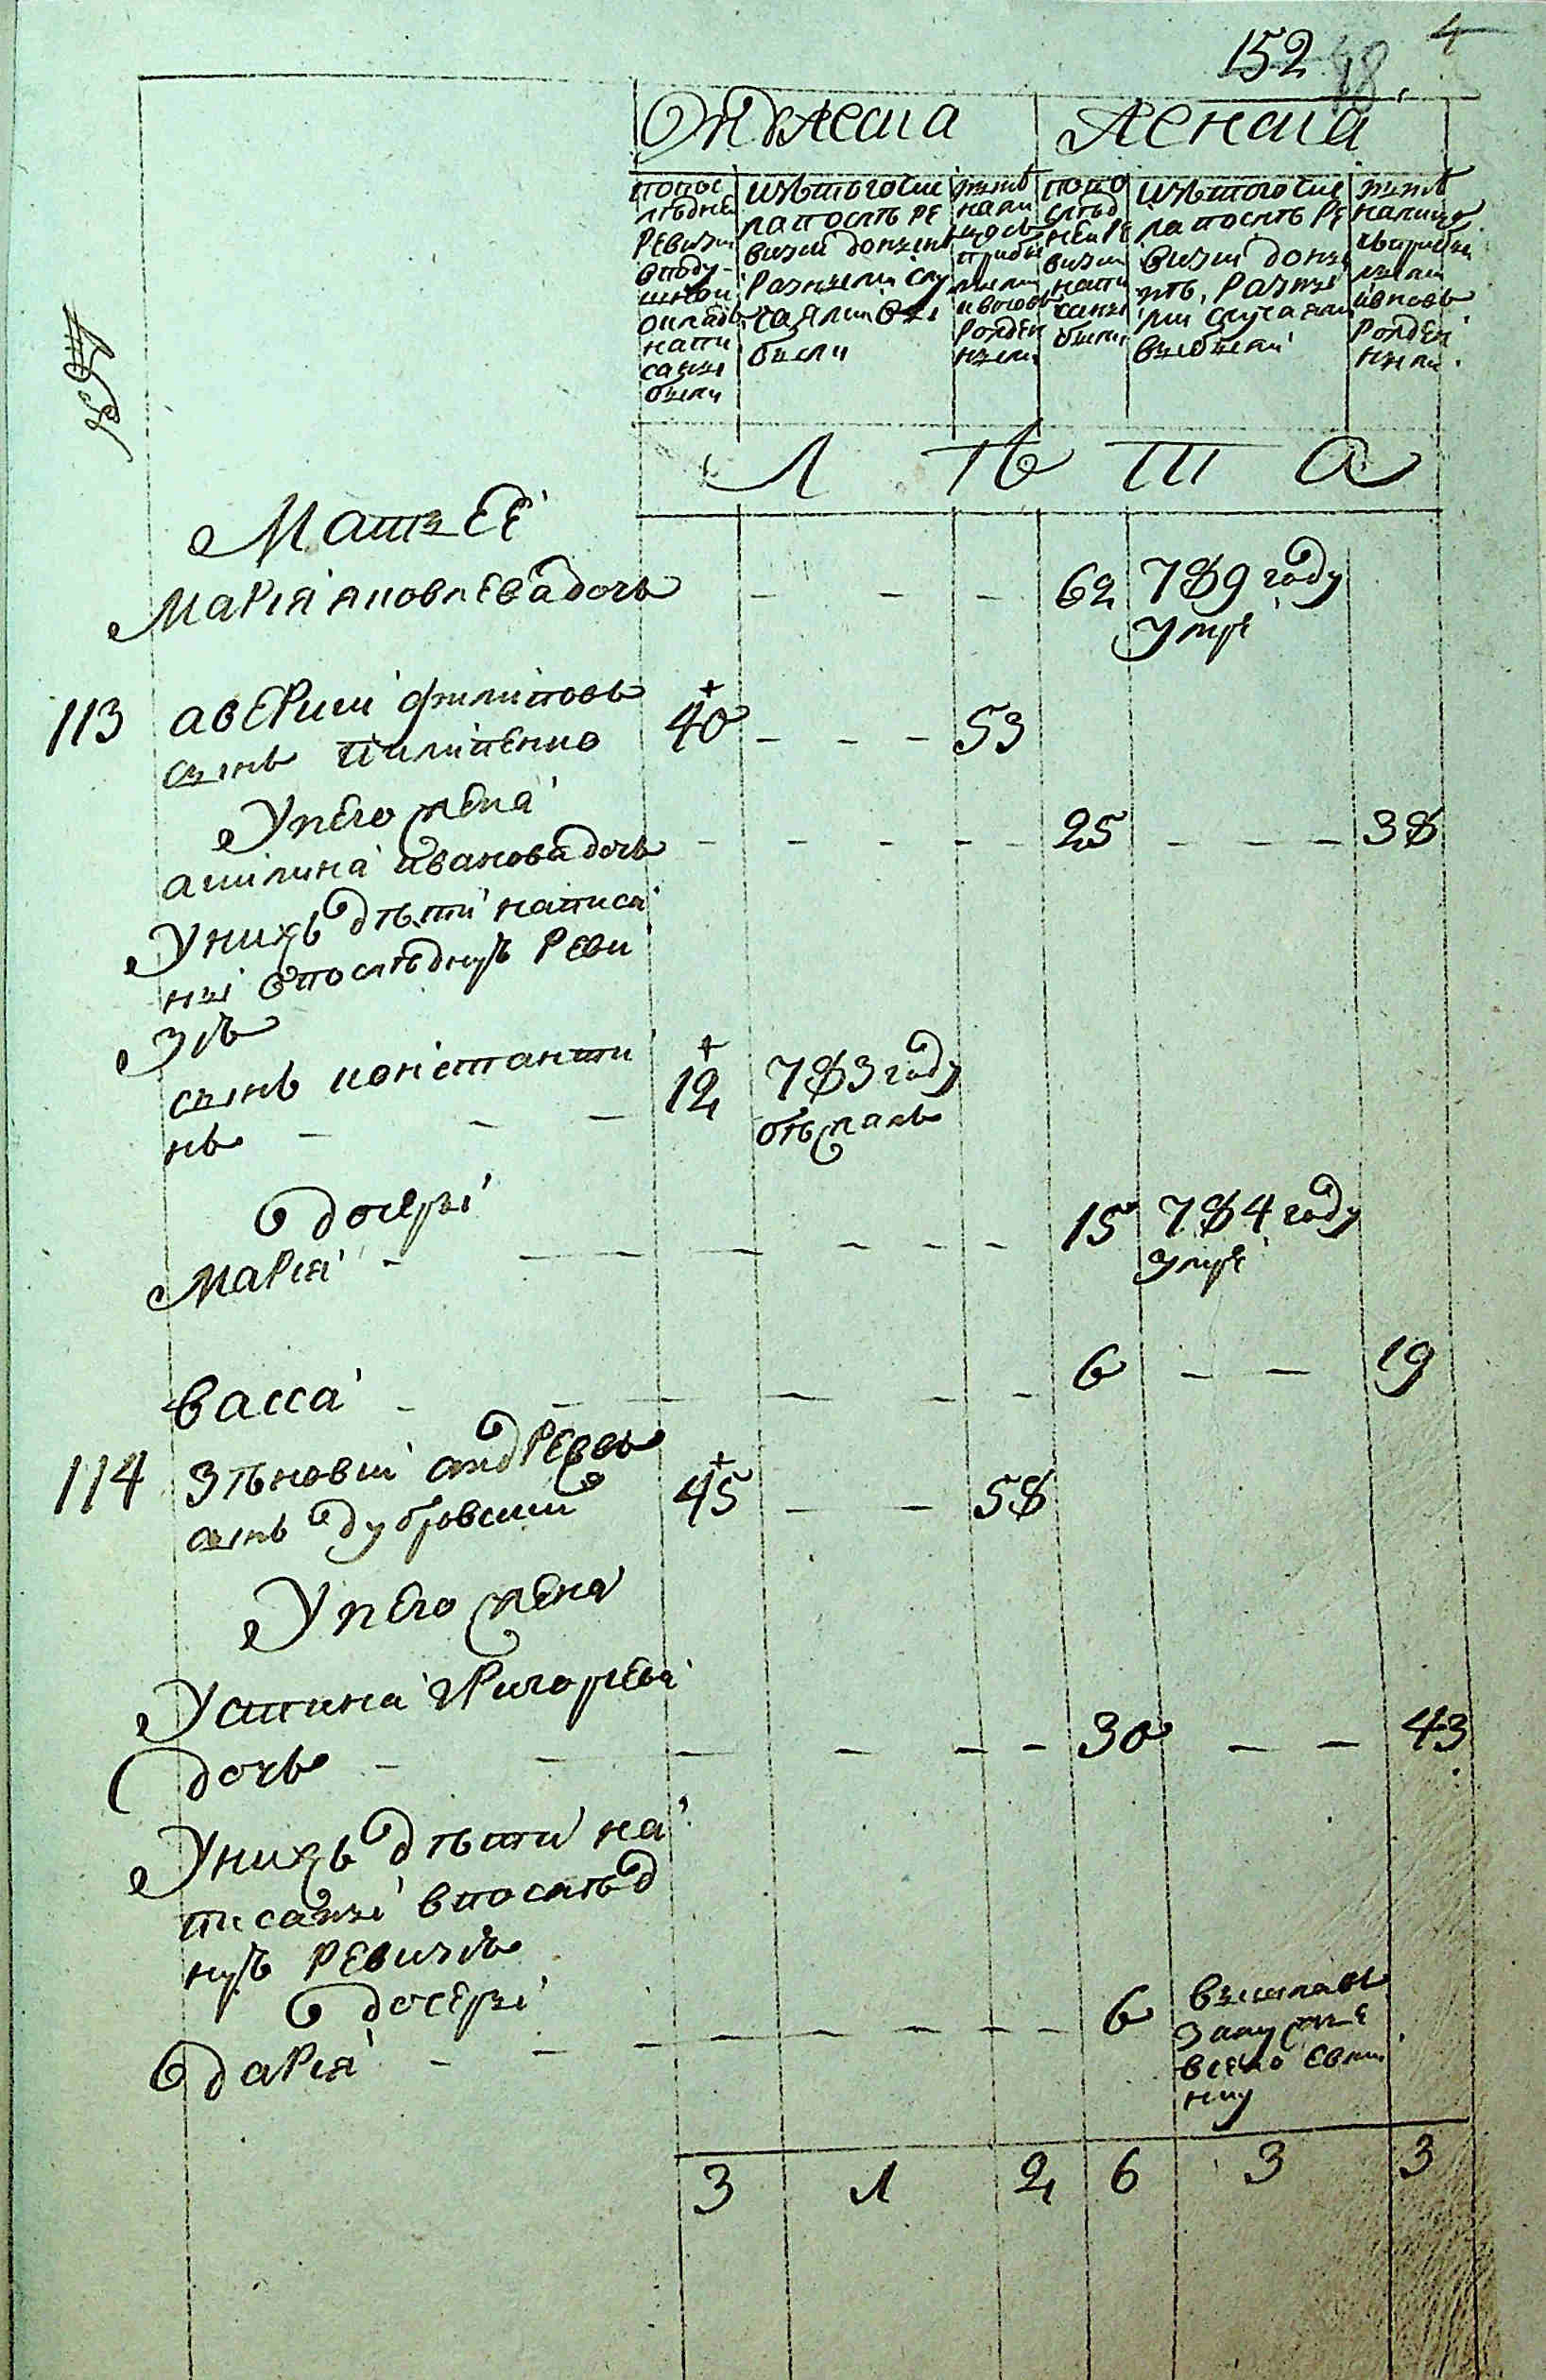 152 4
18
Мужеска Женска
попос лѣдней ревизіи вподу- шной окладъ напи саны были
изътогочис ла послѣ ре визіи донынѣ разными слу чаями вы были
нынѣ нали цосъ прибы лыми ивновь рожден ными
попо слѣд ней ре визіи напи саны были
изътогочис ла послѣ ре визіи доны нѣ, разны ми случаями выбыли
нынѣ налицо съприбы лыми ивновь рожден ными.
Л ѣ т а
Мать Её
Марія яковлева дочь - - - 62 789 году
умре
113 аверкии филиповъ 40 - - - 53
сынъ пилипенко
Унего жена
акилина иванова дочь - - - - - 25 - - - 38
Унихъ дѣти написа
ны впослѣднуѣ реви
зіѣ
сынъ константи 12 783 году
нъ - - - отъданъ
дочери
Марія - - - - - - - 15 784 году
умре
васса - - - - - - 6 - - 19
114 Зѣновіи андреевъ 45 - - 58
сынъ дубровскии
Унего жена
Устина григорева
дочь - - - - - - 30 - - 43
Унихъ дѣти на
писаны впослѣд
нуѣ ревизіѣ
дочери
дарія - - - - - - - - 6 вышла въ
замужже
всело
3 1 2 6 3 3